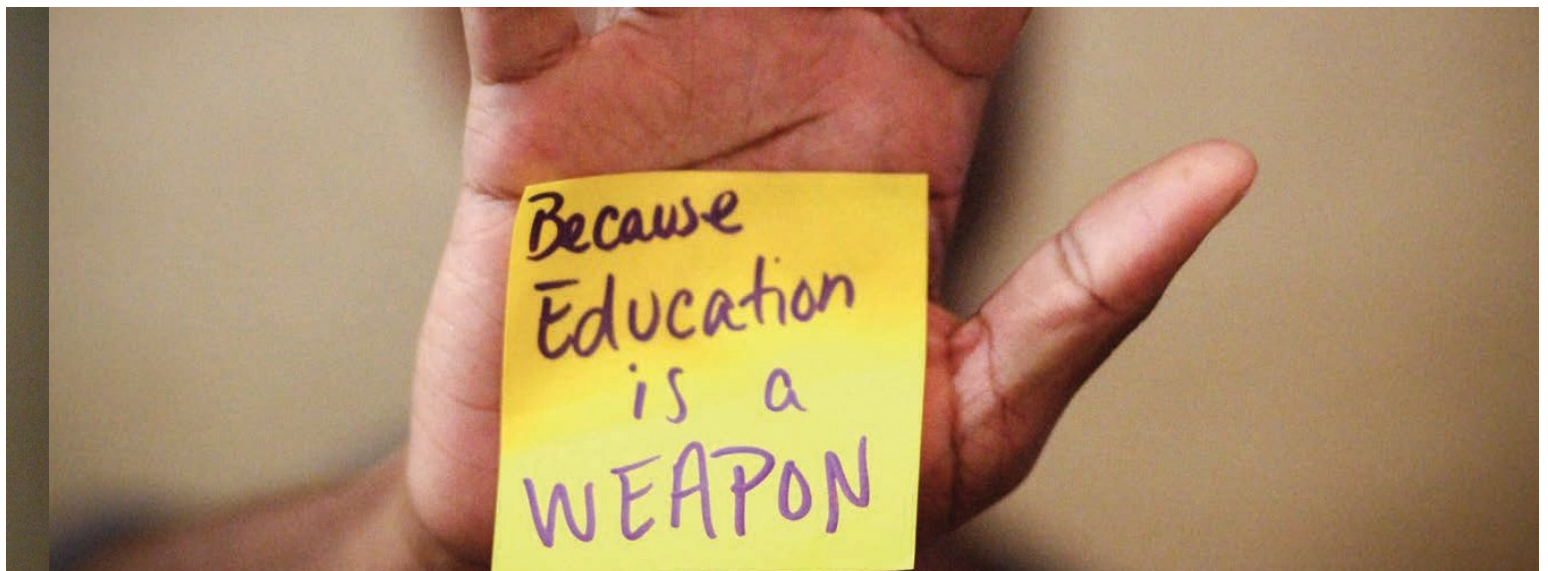 Because
Education
is a
WEAPON